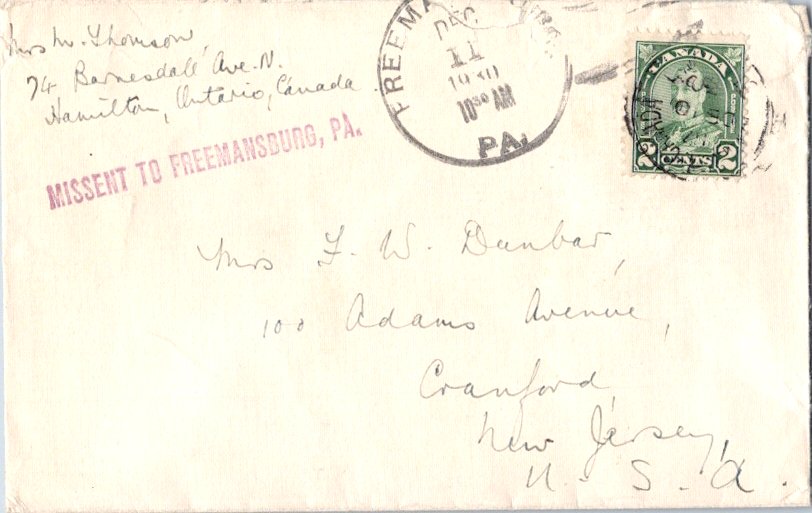 Mrs M. Thomson
74 Barnesdall Ave. N.
Hamilton, Ontario, Canada
MISSENT TO FREEMANSBURG, PA.
DEC
11
1930
10 30 AM
PA.
CANADA
2 CENTS 2
Mrs F. W. Dunbar,
100 Adams Avenue,
Cranford,
New Jersey,
U. S. A.